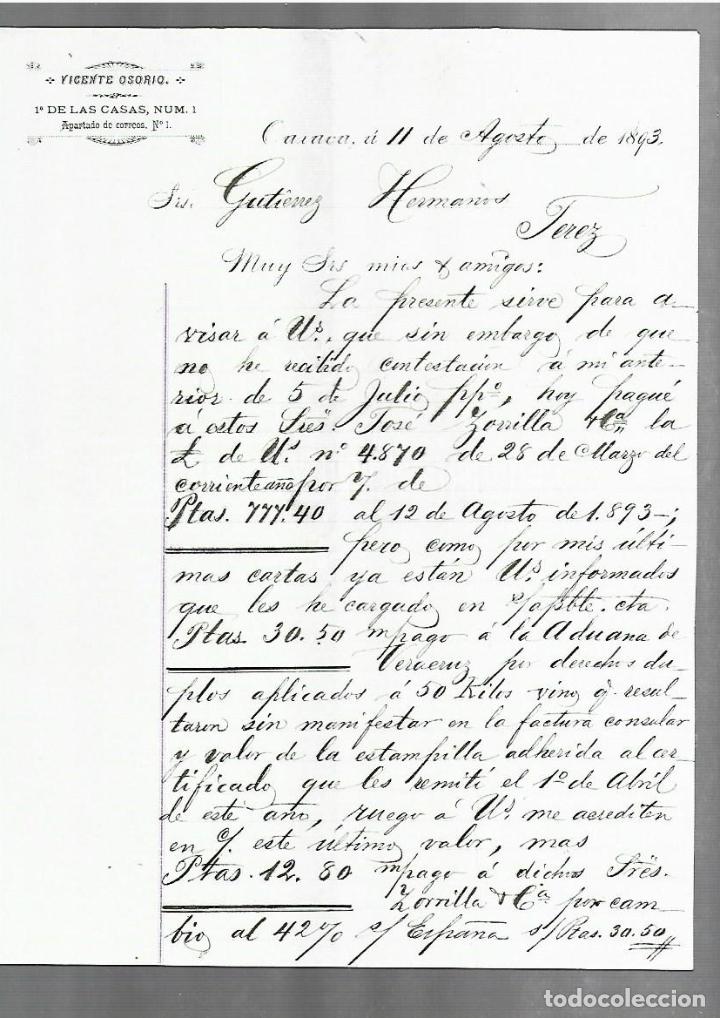 VICENTE OSORIO.
1ª DE LAS CASAS, NUM. 1
Apartado de correos, Nº 1.
Oaxaca, á 11 de Agosto de 1893.
Srs. Gutierrez Hermanos
Jerez
Muy Srs mios & amigos:
La presente sirve para a-
visar á Us. que sin embargo de que
no he recibido contestacion á mi ante-
rior de 5 de Julio ppº, hoy pagué
á estos Sres. José Zorrilla & Cª la
L de Us. nº 4.870 de 28 de Marzo del
corriente año por de
Ptas. 777.40 al 12 de Agosto de 1.893-;
pero como por mis últi-
mas cartas ya están Us. informados
que les he cargado en cta.
Ptas. 30.50 mpago á la Aduana de
Veracruz por derechos du-
plos aplicados á 50 Kilos vino q. resul-
taron sin manifestar en la factura consular
y valor de la estampilla adherida al cer-
tificado que les remití el 1º de Abril
de este año, ruego á Us. me acrediten
en c/ este último valor, mas
Ptas. 12.80 mpago á dichos Sres.
Zorrilla & Cª por cam-
bio al 42% s/ España s/ Ptas. 30.50
todocoleccion